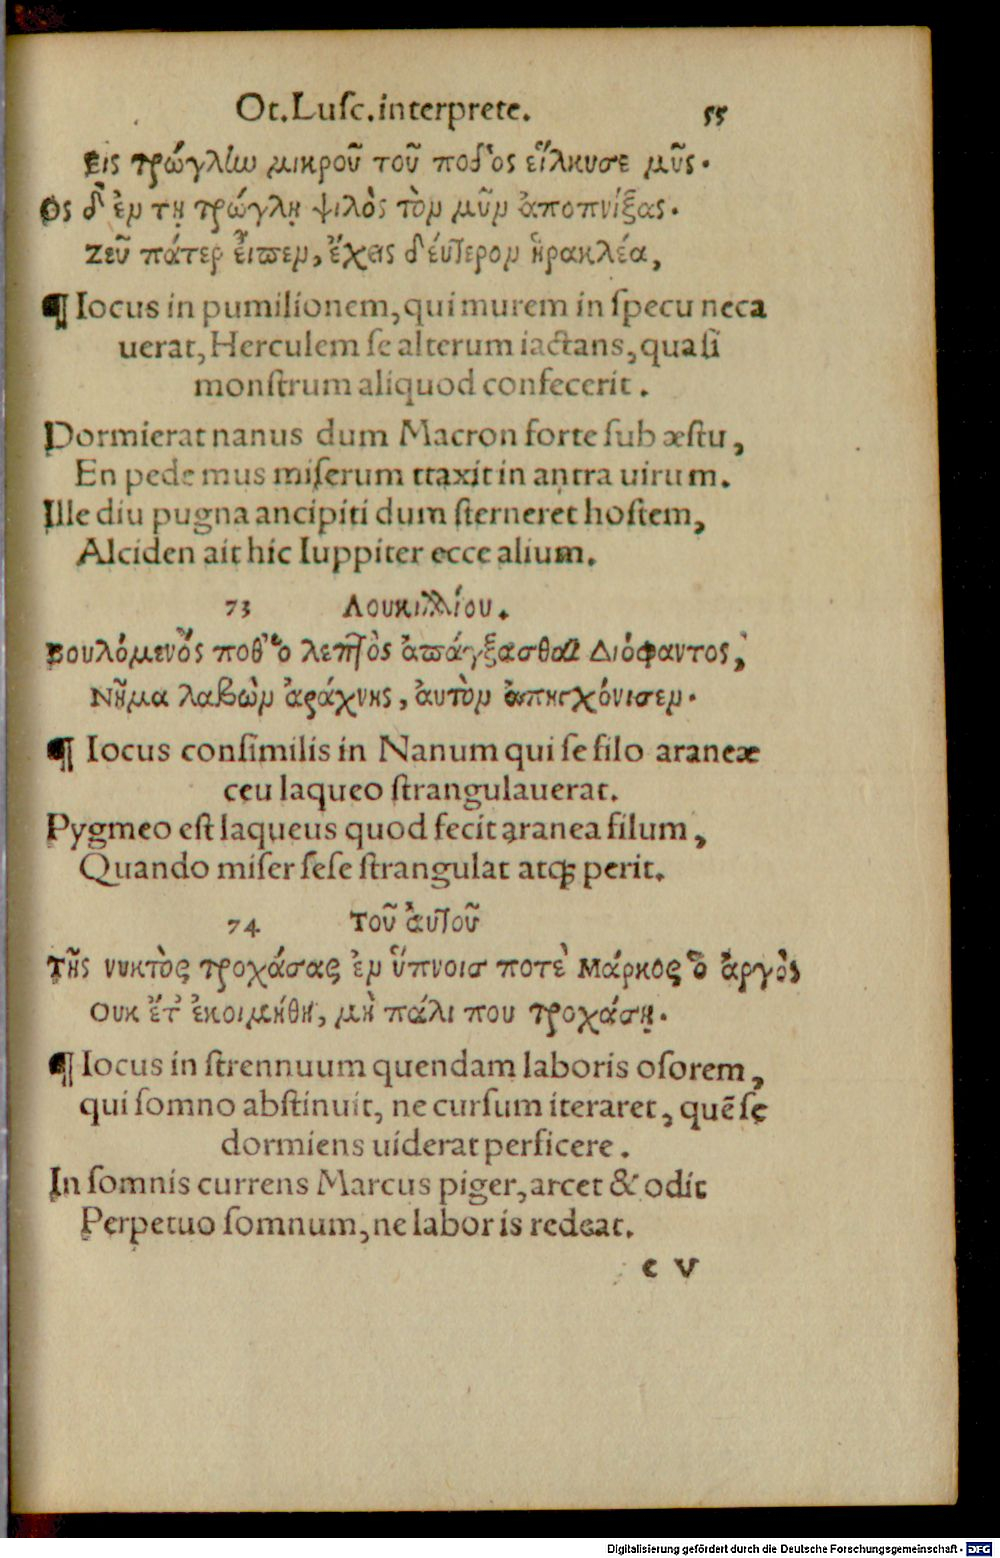 Ot. Luſc. interprete. 55
Εἰς τρώγλην μικροῦ τοῦ ποδὸς εἵλκυσε μῦς.
Ὃς δ' ἐν τῇ τρώγλῃ ψιλὸς τὸν μῦν ἀποπνίξας.
Ζεῦ πάτερ εἶπεν, ἔχεις δεύτερον ἡρακλέα,
¶ Iocus in pumilionem, qui murem in ſpecu neca
uerat, Herculem ſe alterum iactans, quaſi
monſtrum aliquod confecerit.
Dormierat nanus dum Macron forte ſub æſtu,
En pede mus miſerum traxit in antra uirum.
Ille diu pugna ancipiti dum ſterneret hoſtem,
Alciden ait hic Iuppiter ecce alium.
73 Λουκιλλίου.
Βουλόμενός ποθ' ὁ λεπτὸς ἀπάγξασθαι Διόφαντος,
Νῆμα λαβὼν ἀράχνης, ἀυτὸν ἀπηγχόνισεν.
¶ Iocus conſimilis in Nanum qui ſe filo araneæ
ceu laqueo ſtrangulauerat.
Pygmeo eſt laqueus quod fecit aranea filum,
Quando miſer ſeſe ſtrangulat atqꝫ perit.
74 Τοῦ ἀυτοῦ
Τῆς νυκτὸς τροχάσας ἐν ὕπνοις ποτὲ Μάρκος ὁ ἀργὸς
Ουκ ἔτ' ἐκοιμήθη, μὴ πάλι που τροχάσῃ.
¶ Iocus in ſtrennuum quendam laboris oſorem,
qui ſomno abſtinuit, ne curſum iteraret, quẽ ſe
dormiens uiderat perficere.
In ſomnis currens Marcus piger, arcet & odit
Perpetuo ſomnum, ne labor is redeat.
c v
Digitalisierung gefördert durch die Deutsche Forschungsgemeinschaft - DFG